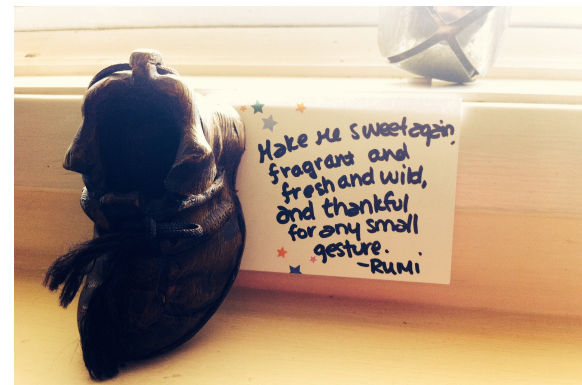 Make me sweet again,
fragrant and
fresh and wild,
and thankful
for any small
gesture.
-RUMI